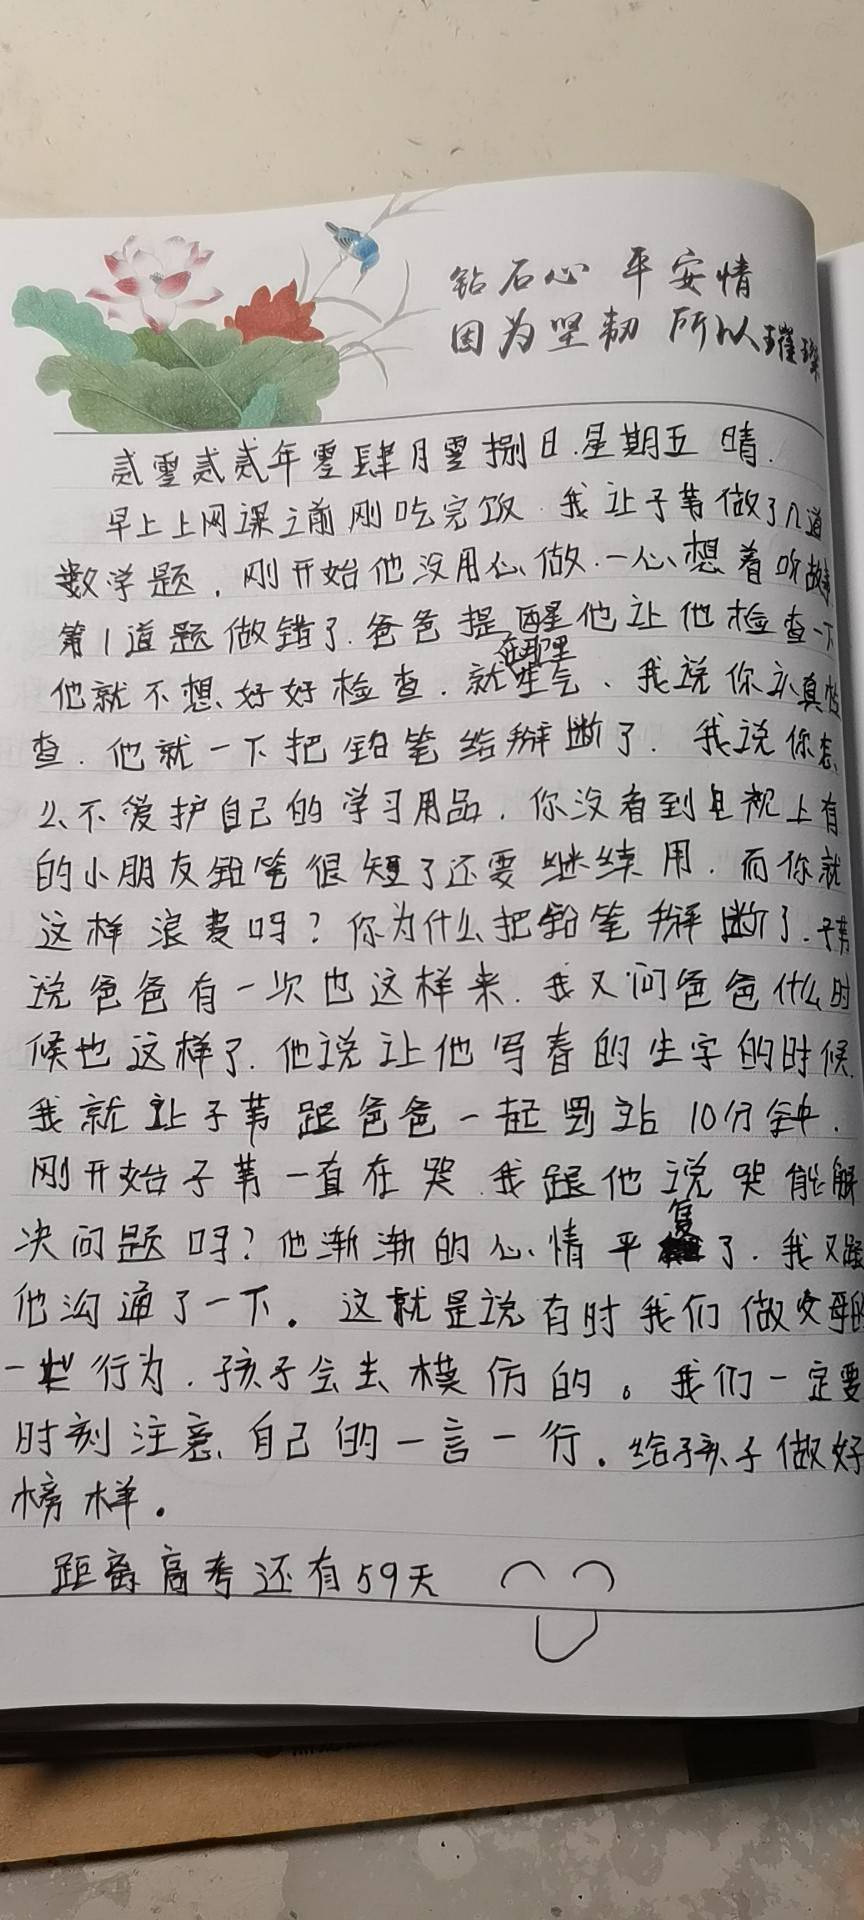 钻石心 平安情
因为坚韧 所以璀璨
贰零贰贰年零肆月零捌日.星期五 晴.
早上上网课之前刚吃完饭.我让子苇做了几道
数学题,刚开始他没用心做.一心想着听故事
第1道题做错了.爸爸提醒他让他检查一下
在那里
他就不想好好检查.就生气、我说你认真检
查.他就一下把铅笔给掰断了.我说你怎
么不爱护自己的学习用品.你没看到电视上有
的小朋友铅笔很短了还要继续用.而你就
这样浪费吗?你为什么把铅笔掰断了.子苇
说爸爸有一次也这样来.我又问爸爸什么时
候也这样了.他说让他写春的生字的时候.
我就让子苇跟爸爸一起罚站10分钟.
刚开始子苇一直在哭.我跟他说哭能解
决问题吗?他渐渐的心情平复了.我又跟
他沟通了一下。这就是说有时我们做父母的
一些行为.孩子会去模仿的。我们一定要
时刻注意自己的一言一行.给孩子做好
榜样.
距离高考还有59天